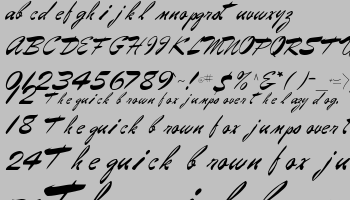 ab cd ef gh i j k l mnopqrst uvwxyz
ABCDEFGHIJKLMNOPQRSTU
0123456789 ~!@#$%^&*()-_
12 The quick brown fox jumps over the lazy dog.
18 The quick brown fox jumps over t
24 The quick brown fox ju